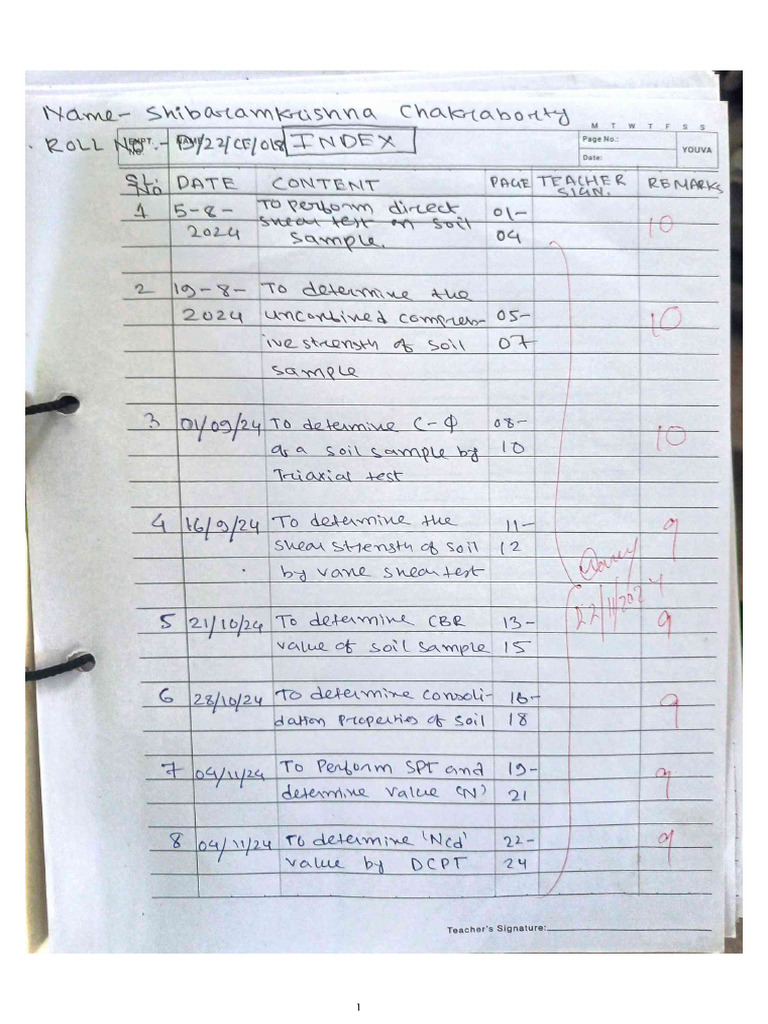 Name- Shibaramkrishna Chakraborty
M T W T F S S
ROLL NO.- 13/22/CE/018 INDEX Page No.:
Date: YOUVA
SL. NO DATE CONTENT PAGE TEACHER SIGN. REMARKS
1 5-8- To perform direct 01- 10
2024 shear test on soil 04
sample.
2 19-8- To determine the
2024 unconfined compress- 05- 10
ive strength of soil 07
sample
3 01/09/24 To determine C-Φ 08-
of a soil sample by 10 10
Triaxial test
4 16/9/24 To determine the 11- 9
shear strength of soil 12
by vane shear test
22/11/2024
5 21/10/24 To determine CBR 13- 9
value of soil sample 15
6 28/10/24 To determine consoli- 16- 9
dation Properties of soil 18
7 04/11/24 To Perform SPT and 19- 9
determine value 'N' 21
8 04/11/24 To determine 'Ncd' 22- 9
value by DCPT 24
Teacher's Signature:
1